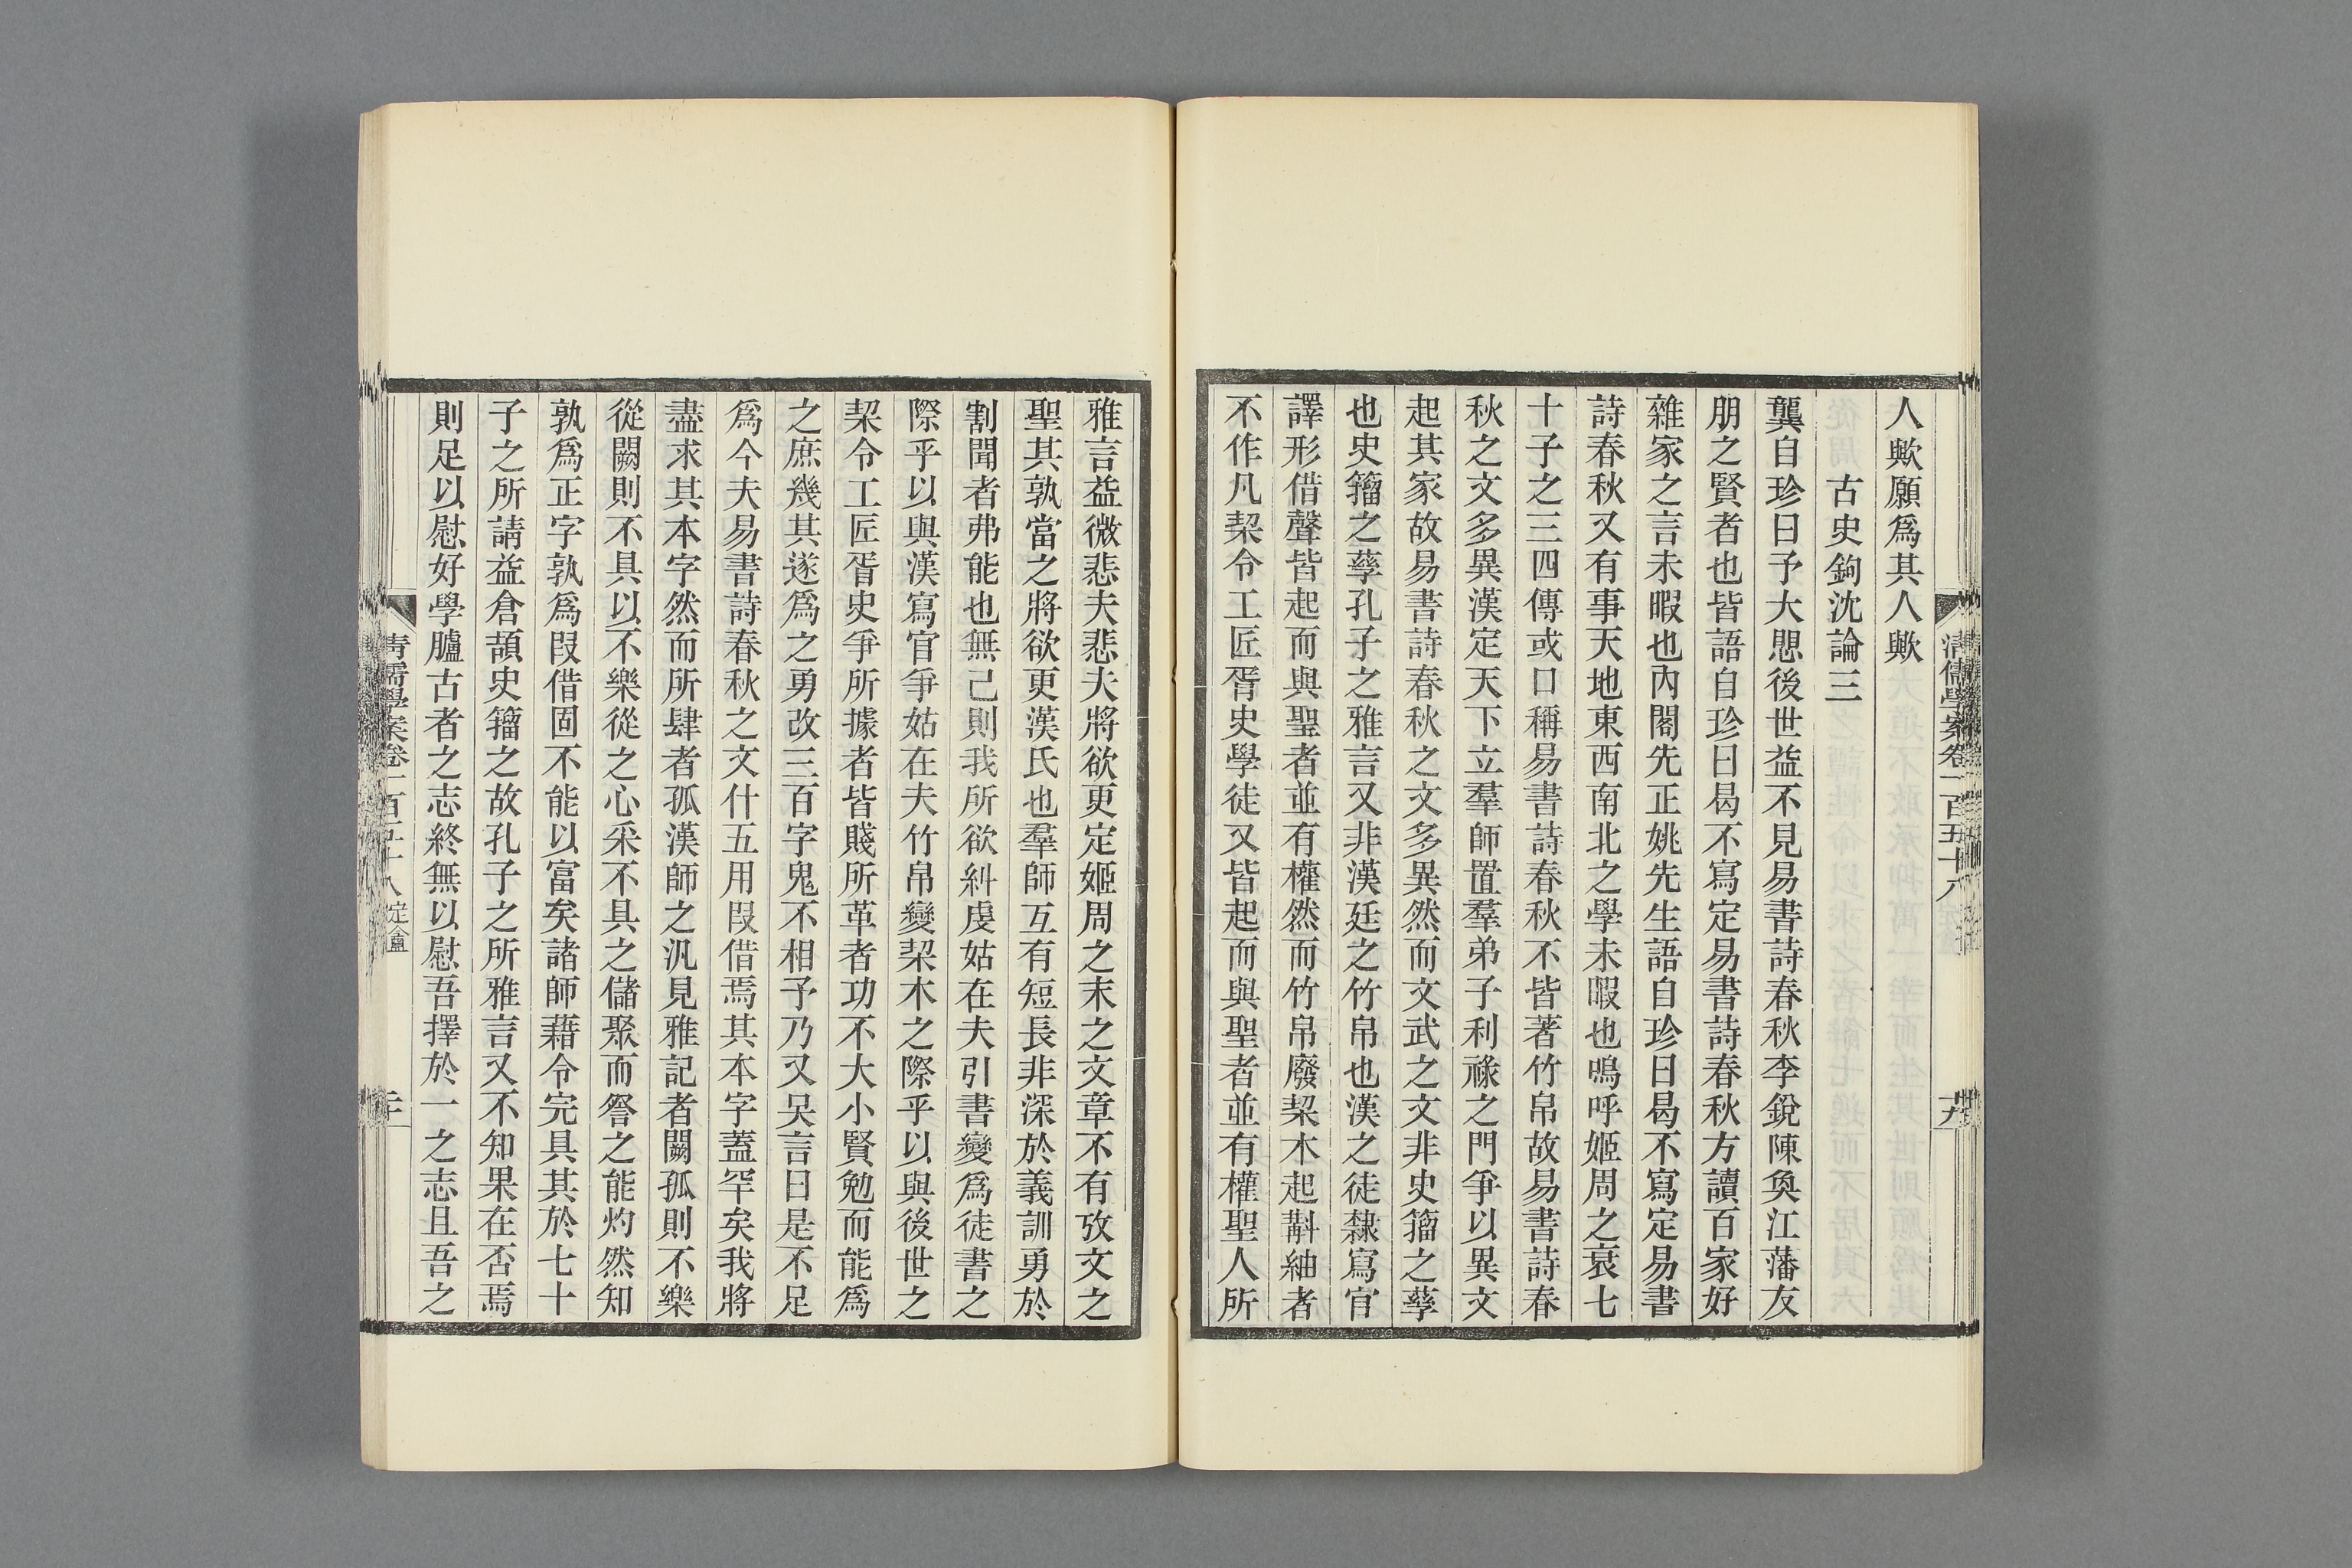 人歟願爲其人歟
古史鉤沈論三
龔自珍曰予大懇後世益不見易書詩春秋李銳陳奐江藩友
朋之賢者也皆語自珍曰曷不寫定易書詩春秋方讀百家好
雜家之言未暇也內閣先正姚先生語自珍曰曷不寫定易書
詩春秋又有事天地東西南北之學未暇也嗚呼姬周之衰七
十子之三四傳或口稱易書詩春秋不皆著竹帛故易書詩春
秋之文多異漢定天下立羣師置羣弟子利祿之門爭以異文
起其家故易書詩春秋之文多異然而文武之文非史籀之孳
也史籀之孳孔子之雅言又非漢廷之竹帛也漢之徒隸寫官
譯形借聲皆起而與聖者並有權然而竹帛廢栔木起斠紬者
不作凡栔令工匠胥史學徒又皆起而與聖者並有權聖人所
雅言益微悲夫悲夫將欲更定姬周之末之文章不有攷文之
聖其孰當之將欲更漢氏也羣師互有短長非深於義訓勇於
割聞者弗能也無己則我所欲糾虔姑在夫引書變爲徒書之
際乎以與漢寫官爭姑在夫竹帛變栔木之際乎以與後世之
栔令工匠胥史爭所據者皆賤所革者功不大小賢勉而能爲
之庶幾其遂爲之勇改三百字鬼不相予乃又吳言曰是不足
爲今夫易書詩春秋之文什五用叚借焉其本字蓋罕矣我將
盡求其本字然而所肆者孤漢師之汎見雅記者闕孤則不樂
從闕則不具以不樂從之心采不具之儲聚而詧之能灼然知
孰爲正字孰爲叚借固不能以富矣諸師藉令完具其於七十
子之所請益倉頡史籀之故孔子之所雅言又不知果在否焉
則足以慰好學臚古者之志終無以慰吾擇於一之志且吾之
清儒學案卷一百五十八
十九
青儒學案卷一百五十八 定盦
二十